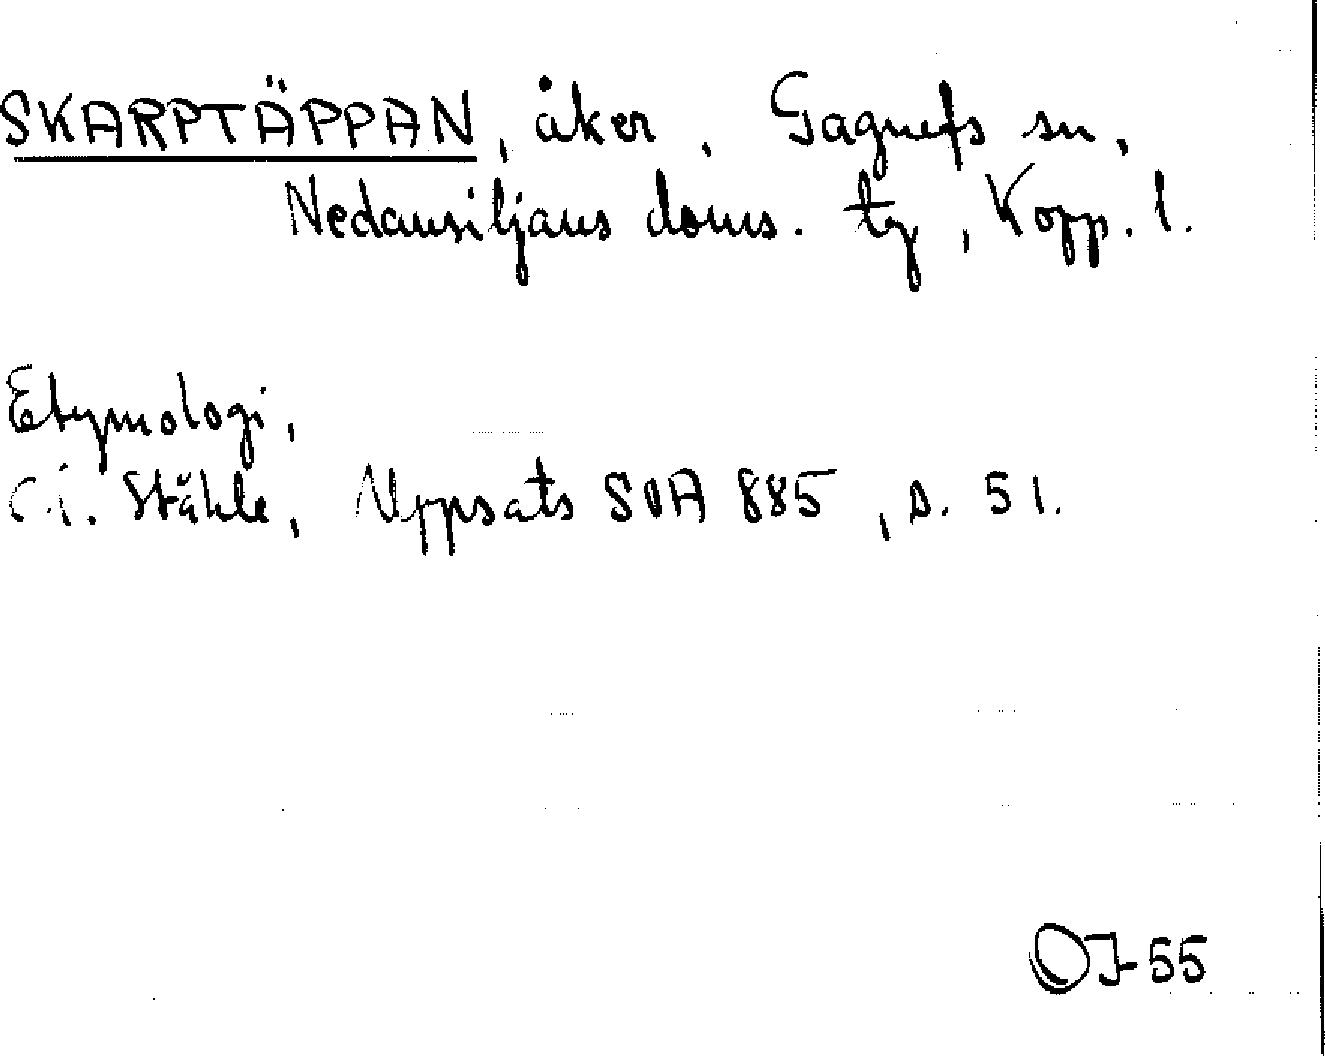 SKARPTÄPPAN, åker, Gagnefs sn,
Nedansiljans doms. tg, Kopp. l.
Etymologi,
C.i. Ståhle, Uppsats SOA 885, s. 51.
OJ-55